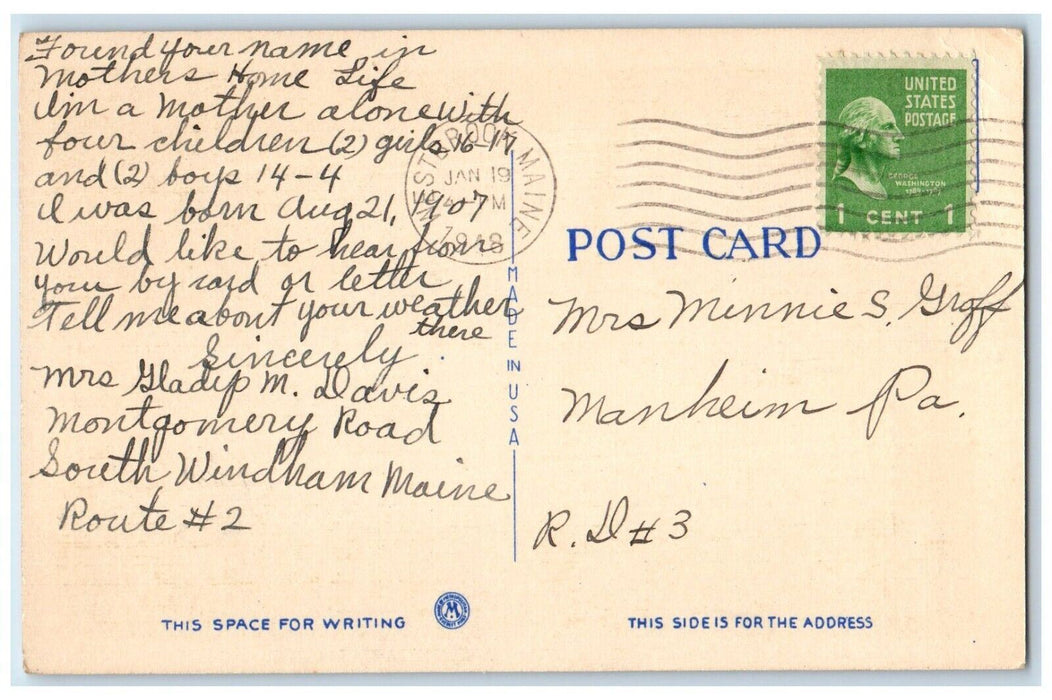 Found your name in
Mothers Home Life
I'm a Mother alone with
four children (2) girls 16-17
and (2) boys 14-4
I was born Aug 21, 1907
Would like to hear from
you by card or letter
Tell me about your weather
there
Sincerely
Mrs Gladys M. Davis
Montgomery Road
South Windham Maine
Route #2
THIS SPACE FOR WRITING
M
MADE IN USA
WESTBROOK MAINE
JAN 19
4 PM
1948
UNITED
STATES
POSTAGE
GEORGE
WASHINGTON
1 CENT 1
POST CARD
Mrs Minnie S. Groff
Manheim Pa.
R. D #3
THIS SIDE IS FOR THE ADDRESS